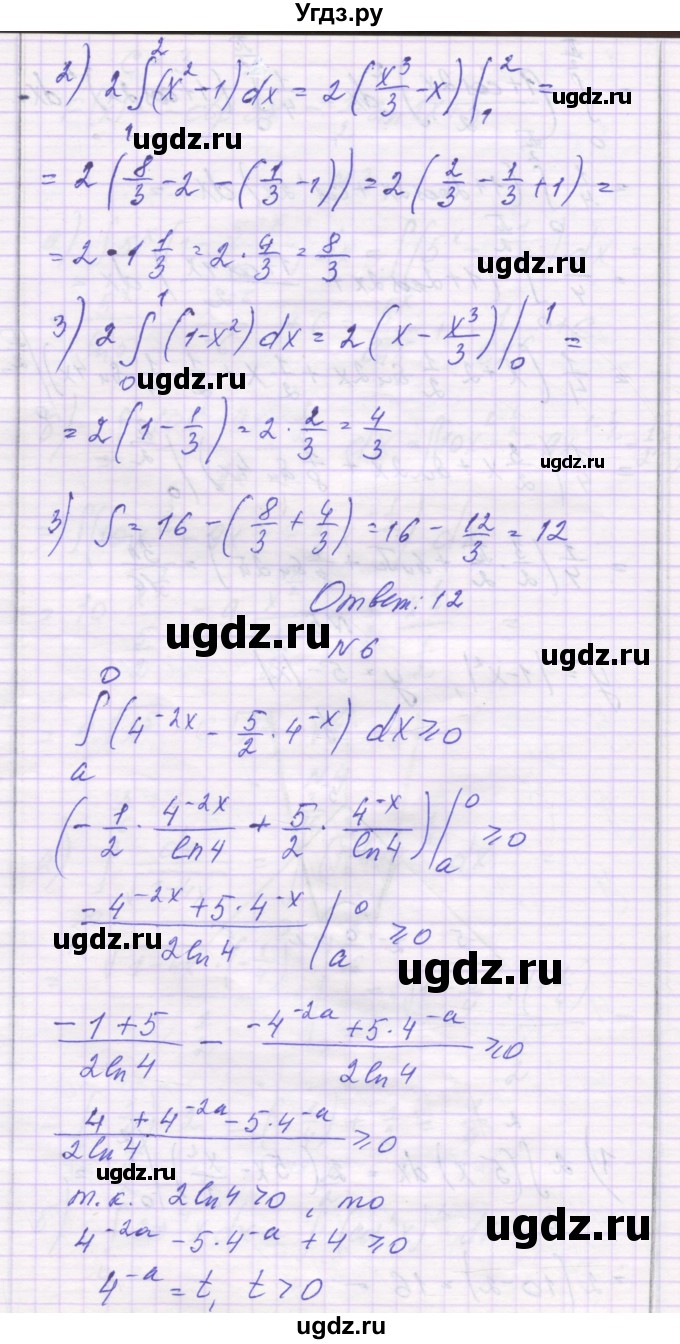 Угдз.ру
2) 2∫₁²(x² - 1)dx = 2(x³/3 - x)|₁² =
ugdz.ru
ugdz.ru
= 2(8/3 - 2 - (1/3 - 1)) = 2(2/3 - 1/3 + 1) =
= 2 · 1 1/3 = 2 · 4/3 = 8/3
ugdz.ru
3) 2∫₀¹(1 - x²)dx = 2(x - x³/3)|₀¹ =
ugdz.ru
= 2(1 - 1/3) = 2 · 2/3 = 4/3
ugdz.ru
3) S = 16 - (8/3 + 4/3) = 16 - 12/3 = 12
Ответ: 12
ugdz.ru
N6
∫ₐ⁰(4^(-2x) - 5/2 · 4^(-x)) dx ≥ 0
(-1/2 · 4^(-2x)/ln4 + 5/2 · 4^(-x)/ln4)|ₐ⁰ ≥ 0
(-4^(-2x) + 5·4^(-x))/(2ln4) |ₐ⁰ ≥ 0
ugdz.ru
ugdz.ru
(-1+5)/(2ln4) - (-4^(-2a) + 5·4^(-a))/(2ln4) ≥ 0
(4 + 4^(-2a) - 5·4^(-a))/(2ln4) ≥ 0
ugdz.ru
т.к. 2ln4 > 0, то
ugdz.ru
4^(-2a) - 5·4^(-a) + 4 ≥ 0
4^(-a) = t, t > 0
ugdz.ru